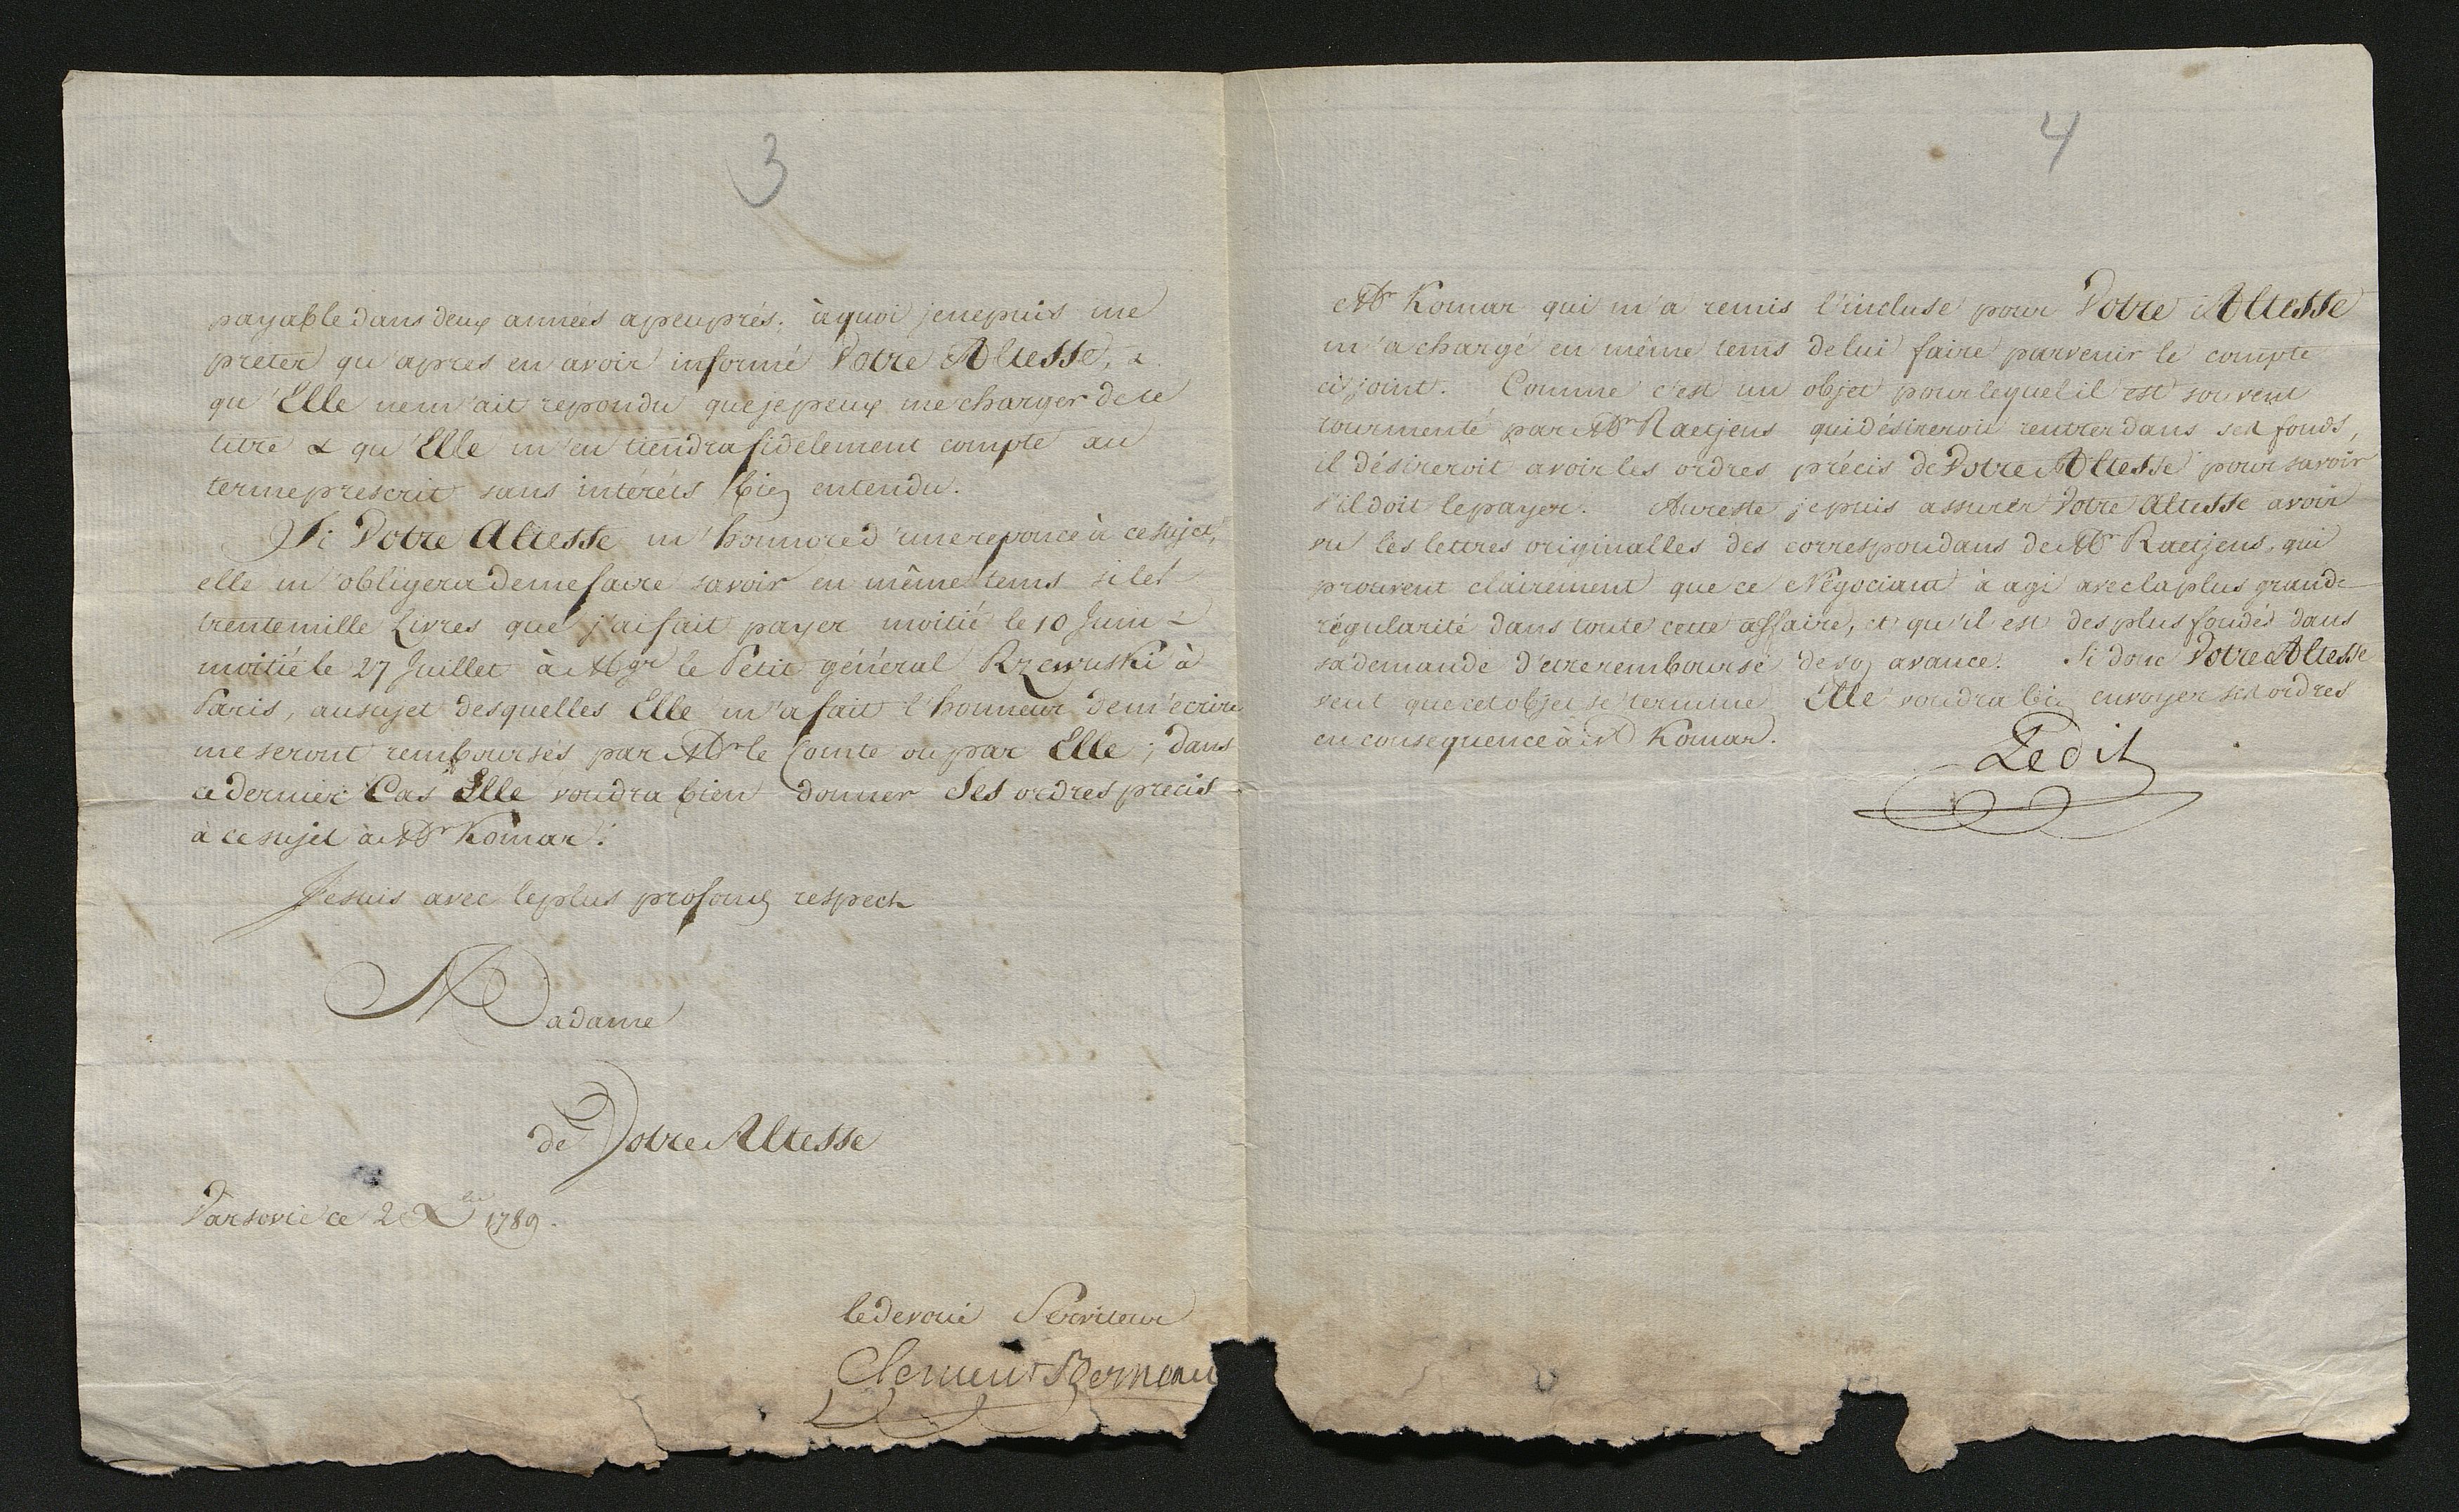 3
payable dans deux années apeuprés. à quoi je ne puis me
preter qu'apres en avoir informé Votre Altesse, &
qu'Elle ne m'ait repondu que je peux me charger de ce
titre & qu'Elle m'en tiendra fidelement compte au
terme prescrit sans intéréts bien entendu.
Si Votre Altesse m'honnore d'une reponce à ce sujet,
elle m'obligera de me faire savoir en même tems si les
trente mille Livres que j'ai fait payer moitié le 10 Juin &
moitié le 27 Juillet à Mgr le Petit général Rzewuski à
Paris, au sujet desquelles Elle m'a fait l'honneur de m'écrire
me seront remboursés par Mr le Comte ou par Elle; dans
ce dernier Cas Elle voudra bien donner Ses ordres précis
à ce sujet à Mr Komar.
Je suis avec le plus profond respect
Madame
de Votre Altesse
Varsovie ce 2 1789.
le devoué Serviteur
Clement Bernaux
4
Mr Komar qui m'a remis l'incluse pour Votre Altesse
m'a chargé en même tems de lui faire parvenir le compte
ci joint. Comme c'est un objet pour lequel il est souvent
tourmenté par Mr Raetjens qui désireroit rentrer dans ses fonds,
il désireroit avoir les ordres précis de Votre Altesse pour savoir
s'il doit le payer. Au reste je puis assurer Votre Altesse avoir
vu les lettres originalles des correspondans de Mr Raetjens, qui
prouvent clairement que ce Négociant à agi avec la plus grande
régularité dans toute cette affaire, et qu'il est des plus fondés dans
sa demande d'etre remboursé de son avance. Si donc Votre Altesse
veut que cet objet se termine Elle voudra bien envoyer ses ordres
en consequence à Mr Komar.
Ledit